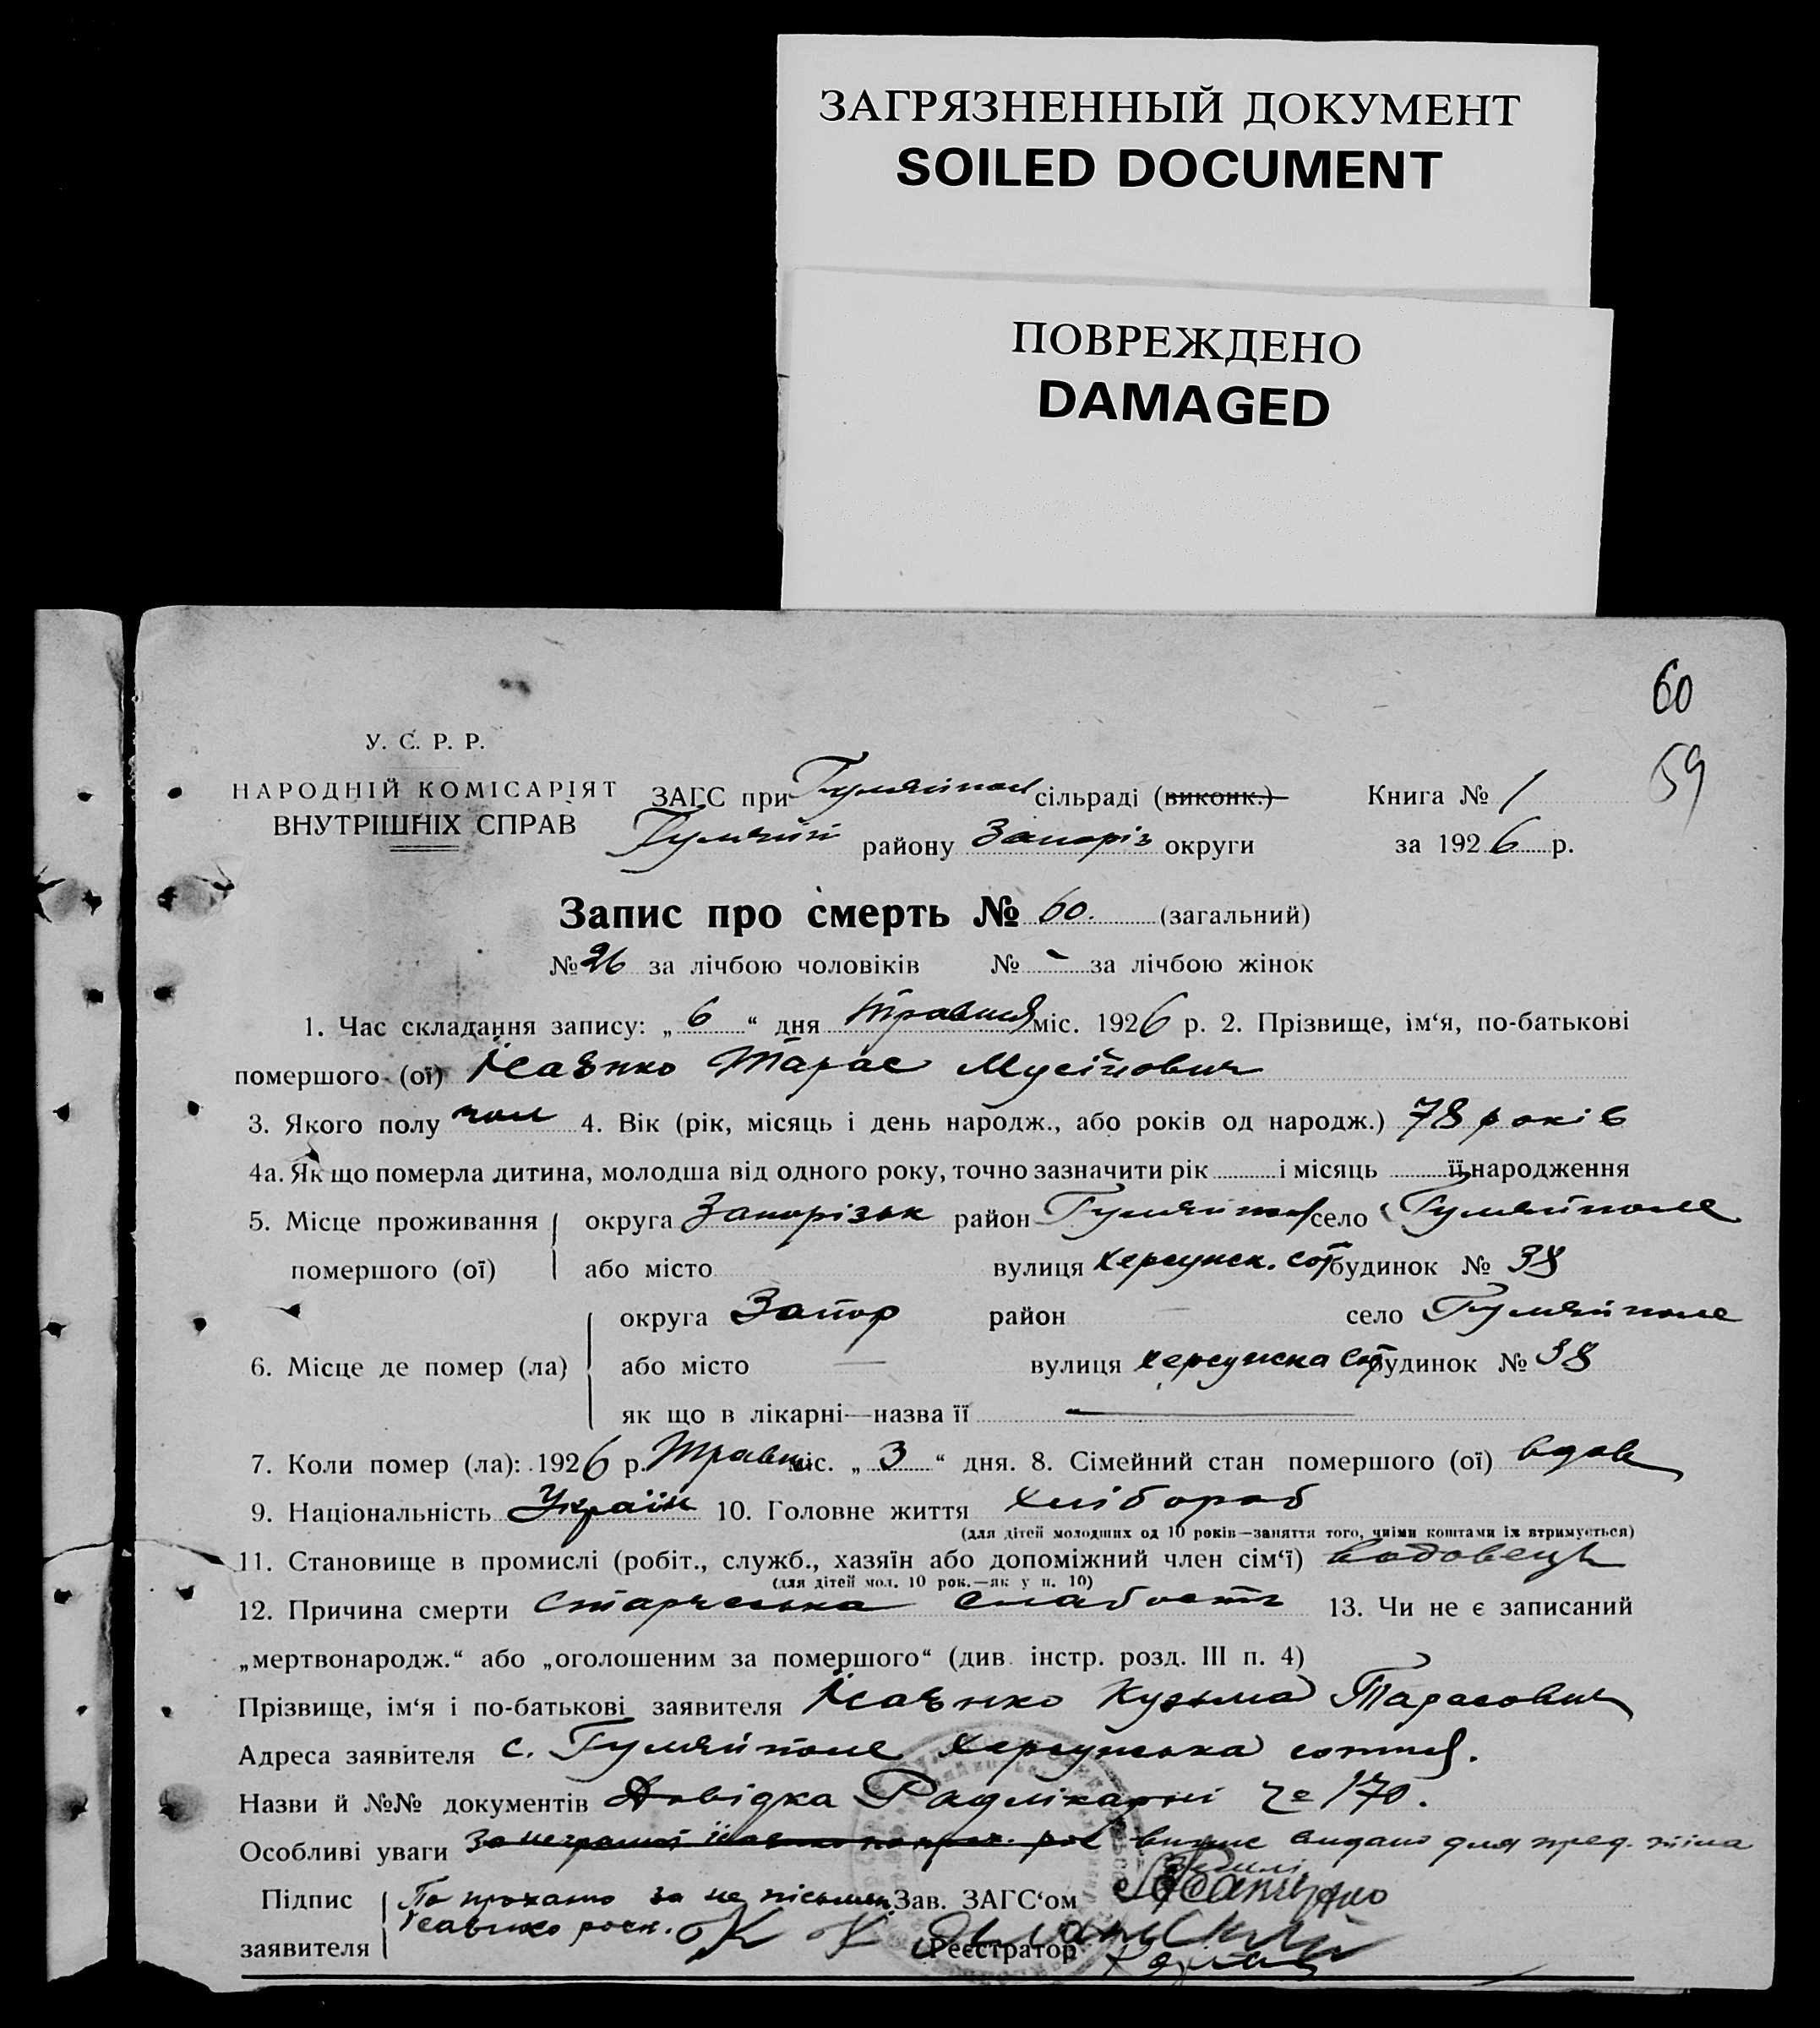 ЗАГРЯЗНЕННЫЙ ДОКУМЕНТ
SOILED DOCUMENT
ПОВРЕЖДЕНО
DAMAGED
60
59
У. С. Р. Р.
НАРОДНІЙ КОМІСАРІЯТ
ВНУТРІШНІХ СПРАВ
ЗАГС при Гуляйпол сільраді (виконк.) Книга № 1
Гуляйп району Запоріз округи за 1926 р.
Запис про смерть № 60. (загальний)
№ 26 за лічбою чоловіків № - за лічбою жінок
1. Час складання запису: „ 6 “ дня травня міс. 1926 р. 2. Прізвище, ім‘я, по-батькові
помершого (ої) Ісаєнко Тарас Мусійович
3. Якого полу чол 4. Вік (рік, місяць і день народж., або років од народж.) 78 років
4а. Як що померла дитина, молодша від одного року, точно зазначити рік і місяць її народження
5. Місце проживання округа Запорізьк район Гуляйпол село Гуляйполе
помершого (ої) або місто вулиця Херсунск. сот будинок № 38
округа Запор район село Гуляйполе
6. Місце де помер (ла) або місто — вулиця Херсунска сот будинок № 38
як що в лікарні—назва її —
7. Коли помер (ла): 1926 р. Травн міс. „ 3 “ дня. 8. Сімейний стан помершого (ої) вдов
9. Національність Україн 10. Головне життя хлібороб
(для дітей молодших од 10 років—заняття того, чиїми коштами їх втримується)
11. Становище в промислі (робіт., служб., хазяїн або допоміжний член сім‘ї)
(для дітей мол. 10 рок.—як у п. 10)
12. Причина смерти Старческа слабость 13. Чи не є записаний
„мертвонародж.“ або „оголошеним за помершого“ (див. інстр. розд. III п. 4)
Прізвище, ім‘я і по-батькові заявителя Ісаєнко Кузьма Тарасович
Адреса заявителя с. Гуляйполе Херсунська сотня.
Назви й №№ документів Довідка Райлікарні № 170.
Особливі уваги випис видано для пред. тіла
Підпис По проханю за не письмен Зав. ЗАГС‘ом
заявителя Ісаєнко росп. Реєстратор